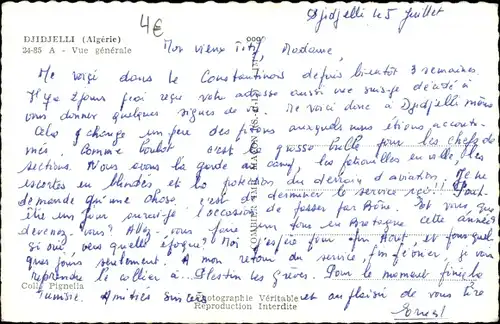 4€
Djidjelli le 5 Juillet
DJIDJELLI (Algérie)
24-85 A - Vue générale
Mon vieux Tité, Madame,
Me voici dans le Constantinois depuis bientôt 3 semaines.
Il y a 2 jours j'ai reçu votre adresse aussi me suis-je décidé à
vous donner quelques signes de vie. Me voici donc à Djidjelli même
Cela change un peu des pitons auxquels nous étions accoutu-
més. Comme boulot c'est la grosse tuile pour les chefs de
sections. Nous avons la garde au camp, les patrouilles en ville, les
escortes en blindés et la protection du terrain d'aviation. Je ne
demande qu'une chose, c'est de terminer le service ici! Peut
être un jour aurai-je l'occasion de passer par Bône. Et vous que
devenez-vous? Allez-vous faire un tour en Bretagne cette année
si oui vers quelle époque? Moi j'espère pour fin Août, et pour quel
ques jours seulement. A mon retour du service, fin février, je vais
reprendre le collier à Plestin les Grèves. Pour le moment finie la
Tunisie. Amitiés sincères et au plaisir de vous lire
Ernest
Colle Pignella
Photographie Véritable
Reproduction Interdite